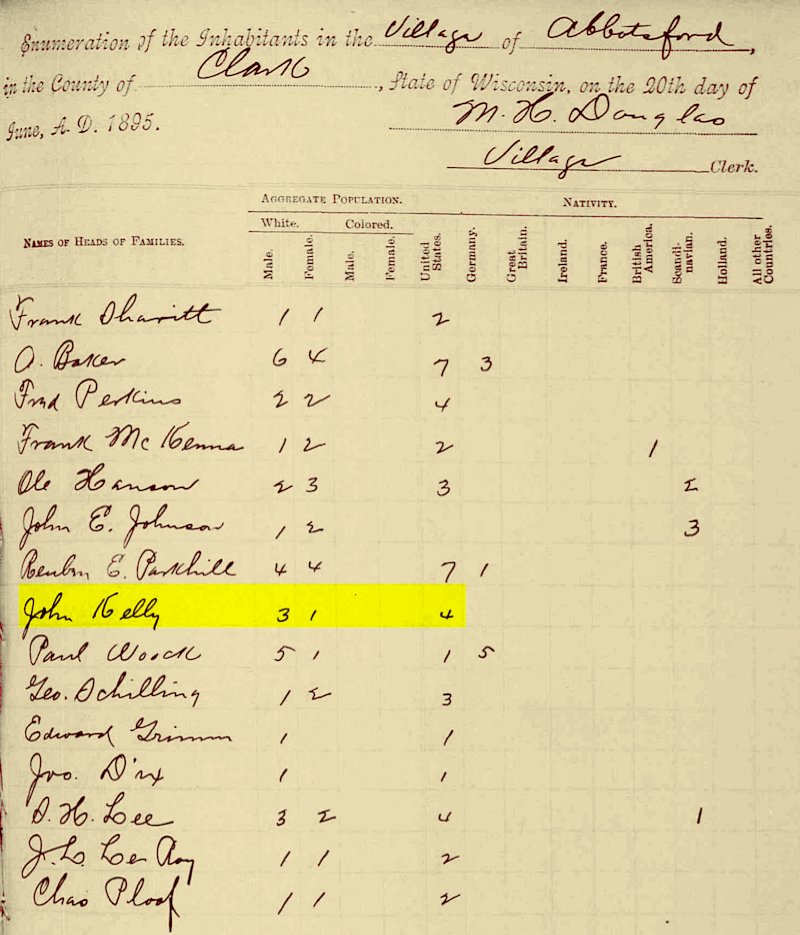 Enumeration of the Inhabitants in the Village of Abbotsford,
in the County of Clark, State of Wisconsin, on the 20th day of
June, A. D. 1895. M. H. Douglas
Village Clerk.
Aggregate Population. Nativity.
White. Colored.
Names of Heads of Families. Male. Female. Male. Female. United States. Germany. Great Britain. Ireland. France. British America. Scandinavian. Holland. All other Countries.
Frank 1 1 2
A. Baker 6 4 7 3
Fred Perkins 2 2 4
Frank McKenna 1 2 2 1
Ole Hanson 2 3 3 2
John E. Johnson 1 2 3
Reuben E. Parkhill 4 4 7 1
John Kelly 3 1 4
Paul Woock 5 1 1 5
Geo. Schilling 1 2 3
Edward Grimm 1 1
Jno. Dix 1 1
H. Lee 3 2 4 1
J. L. Le Roy 1 1 2
Chas Ploof 1 1 2